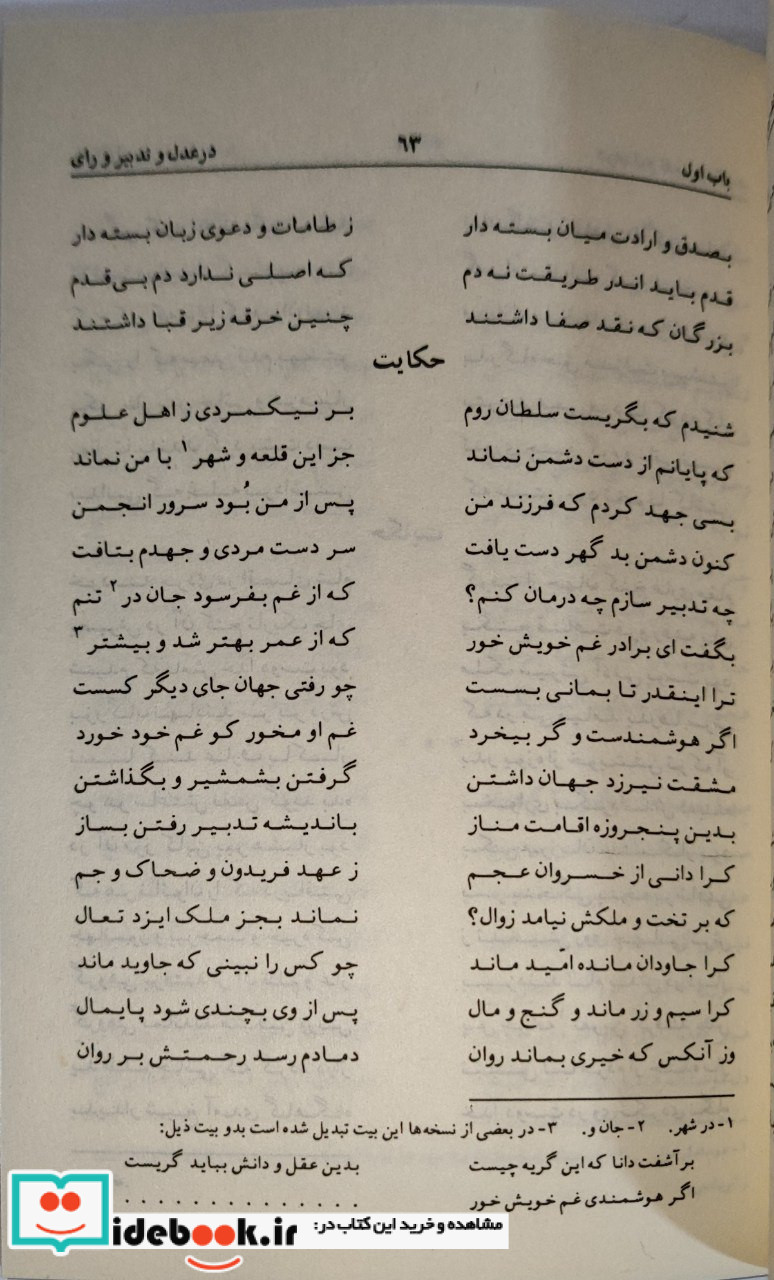 باب اول ۶۳ در عدل و تدبیر و رای
بصدق و ارادت میان بسته دار ز طامات و دعوی زبان بسته دار
قدم باید اندر طریقت نه دم که اصلی ندارد دم بی‌قدم
بزرگان که نقد صفا داشتند چنین خرقه زیر قبا داشتند
حکایت
شنیدم که بگریست سلطان روم بر نیکمردی ز اهل علوم
که پایانم از دست دشمن نماند جز این قلعه و شهر ۱ با من نماند
بسی جهد کردم که فرزند من پس از من بُود سرور انجمن
کنون دشمن بد گهر دست یافت سر دست مردی و جهدم بتافت
چه تدبیر سازم چه درمان کنم؟ که از غم بفرسود جان در ۲ تنم
بگفت ای برادر غم خویش خور که از عمر بهتر شد و بیشتر ۳
ترا اینقدر تا بمانی بسست چو رفتی جهان جای دیگر کسست
اگر هوشمندست و گر بیخرد غم او مخور کو غم خود خورد
مشقت نیرزد جهان داشتن گرفتن بشمشیر و بگذاشتن
بدین پنجروزه اقامت مناز باندیشه تدبیر رفتن بساز
کرا دانی از خسروان عجم ز عهد فریدون و ضحاک و جم
که بر تخت و ملکش نیامد زوال؟ نماند بجز ملک ایزد تعال
کرا جاودان مانده امّید ماند چو کس را نبینی که جاوید ماند
کرا سیم و زر ماند و گنج و مال پس از وی بچندی شود پایمال
وز آنکس که خیری بماند روان دمادم رسد رحمتش بر روان
۱- در شهر. ۲- جان و. ۳- در بعضی از نسخه‌ها این بیت تبدیل شده است بدو بیت ذیل:
بر آشفت دانا که این گریه چیست بدین عقل و دانش بباید گریست
اگر هوشمندی غم خویش خور . . . . . . . . . . . . . .
مشاهده و خرید این کتاب در:
idebook.ir